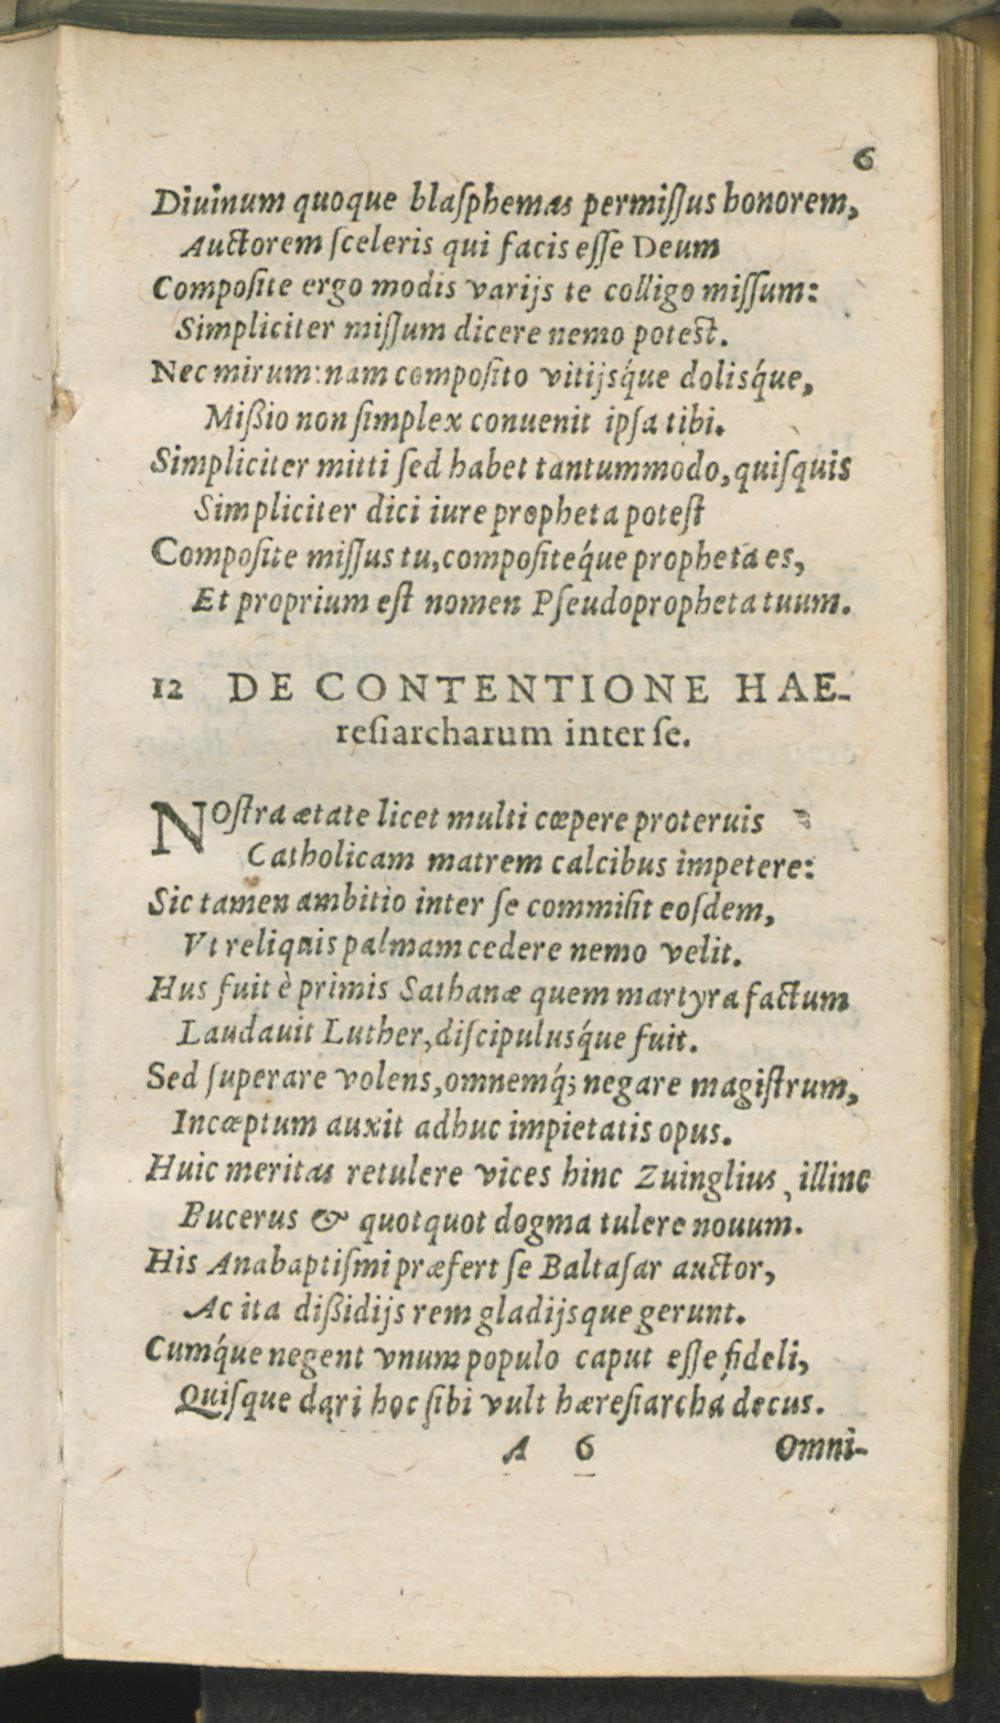 6
Diuinum quoque blaſphemas permiſſus honorem,
Auctorem ſceleris qui facis eſſe Deum
Compoſite ergo modis varijs te colligo miſſum:
Simpliciter miſſum dicere nemo poteſt.
Nec mirum: nam compoſito vitijsq́ue dolisq́ue,
Mißio non ſimplex conuenit ipſa tibi.
Simpliciter mitti ſed habet tantummodo, quiſquis
Simpliciter dici iure propheta poteſt
Compoſite miſſus tu, compoſiteq́ue propheta es,
Et proprium eſt nomen Pſeudopropheta tuum.
12 DE CONTENTIONE HAE-
reſiarcharum inter ſe.
NOſtra ætate licet multi cœpere proteruis
Catholicam matrem calcibus impetere:
Sic tamen ambitio inter ſe commiſit eoſdem,
Vt reliquis palmam cedere nemo velit.
Hus fuit è primis Sathanæ quem martyra factum
Laudauit Luther, diſcipulusq́ue fuit.
Sed ſuperare volens, omnemq́; negare magiſtrum,
Incœptum auxit adhuc impietatis opus.
Huic meritas retulere vices hinc Zuinglius, illinc
Bucerus & quotquot dogma tulere nouum.
His Anabaptiſmi præfert ſe Baltaſar auctor,
Ac ita dißidijs rem gladijsque gerunt.
Cumq́ue negent vnum populo caput eſſe fideli,
Quiſque dari hoc ſibi vult hæreſiarcha decus.
A 6 Omni-